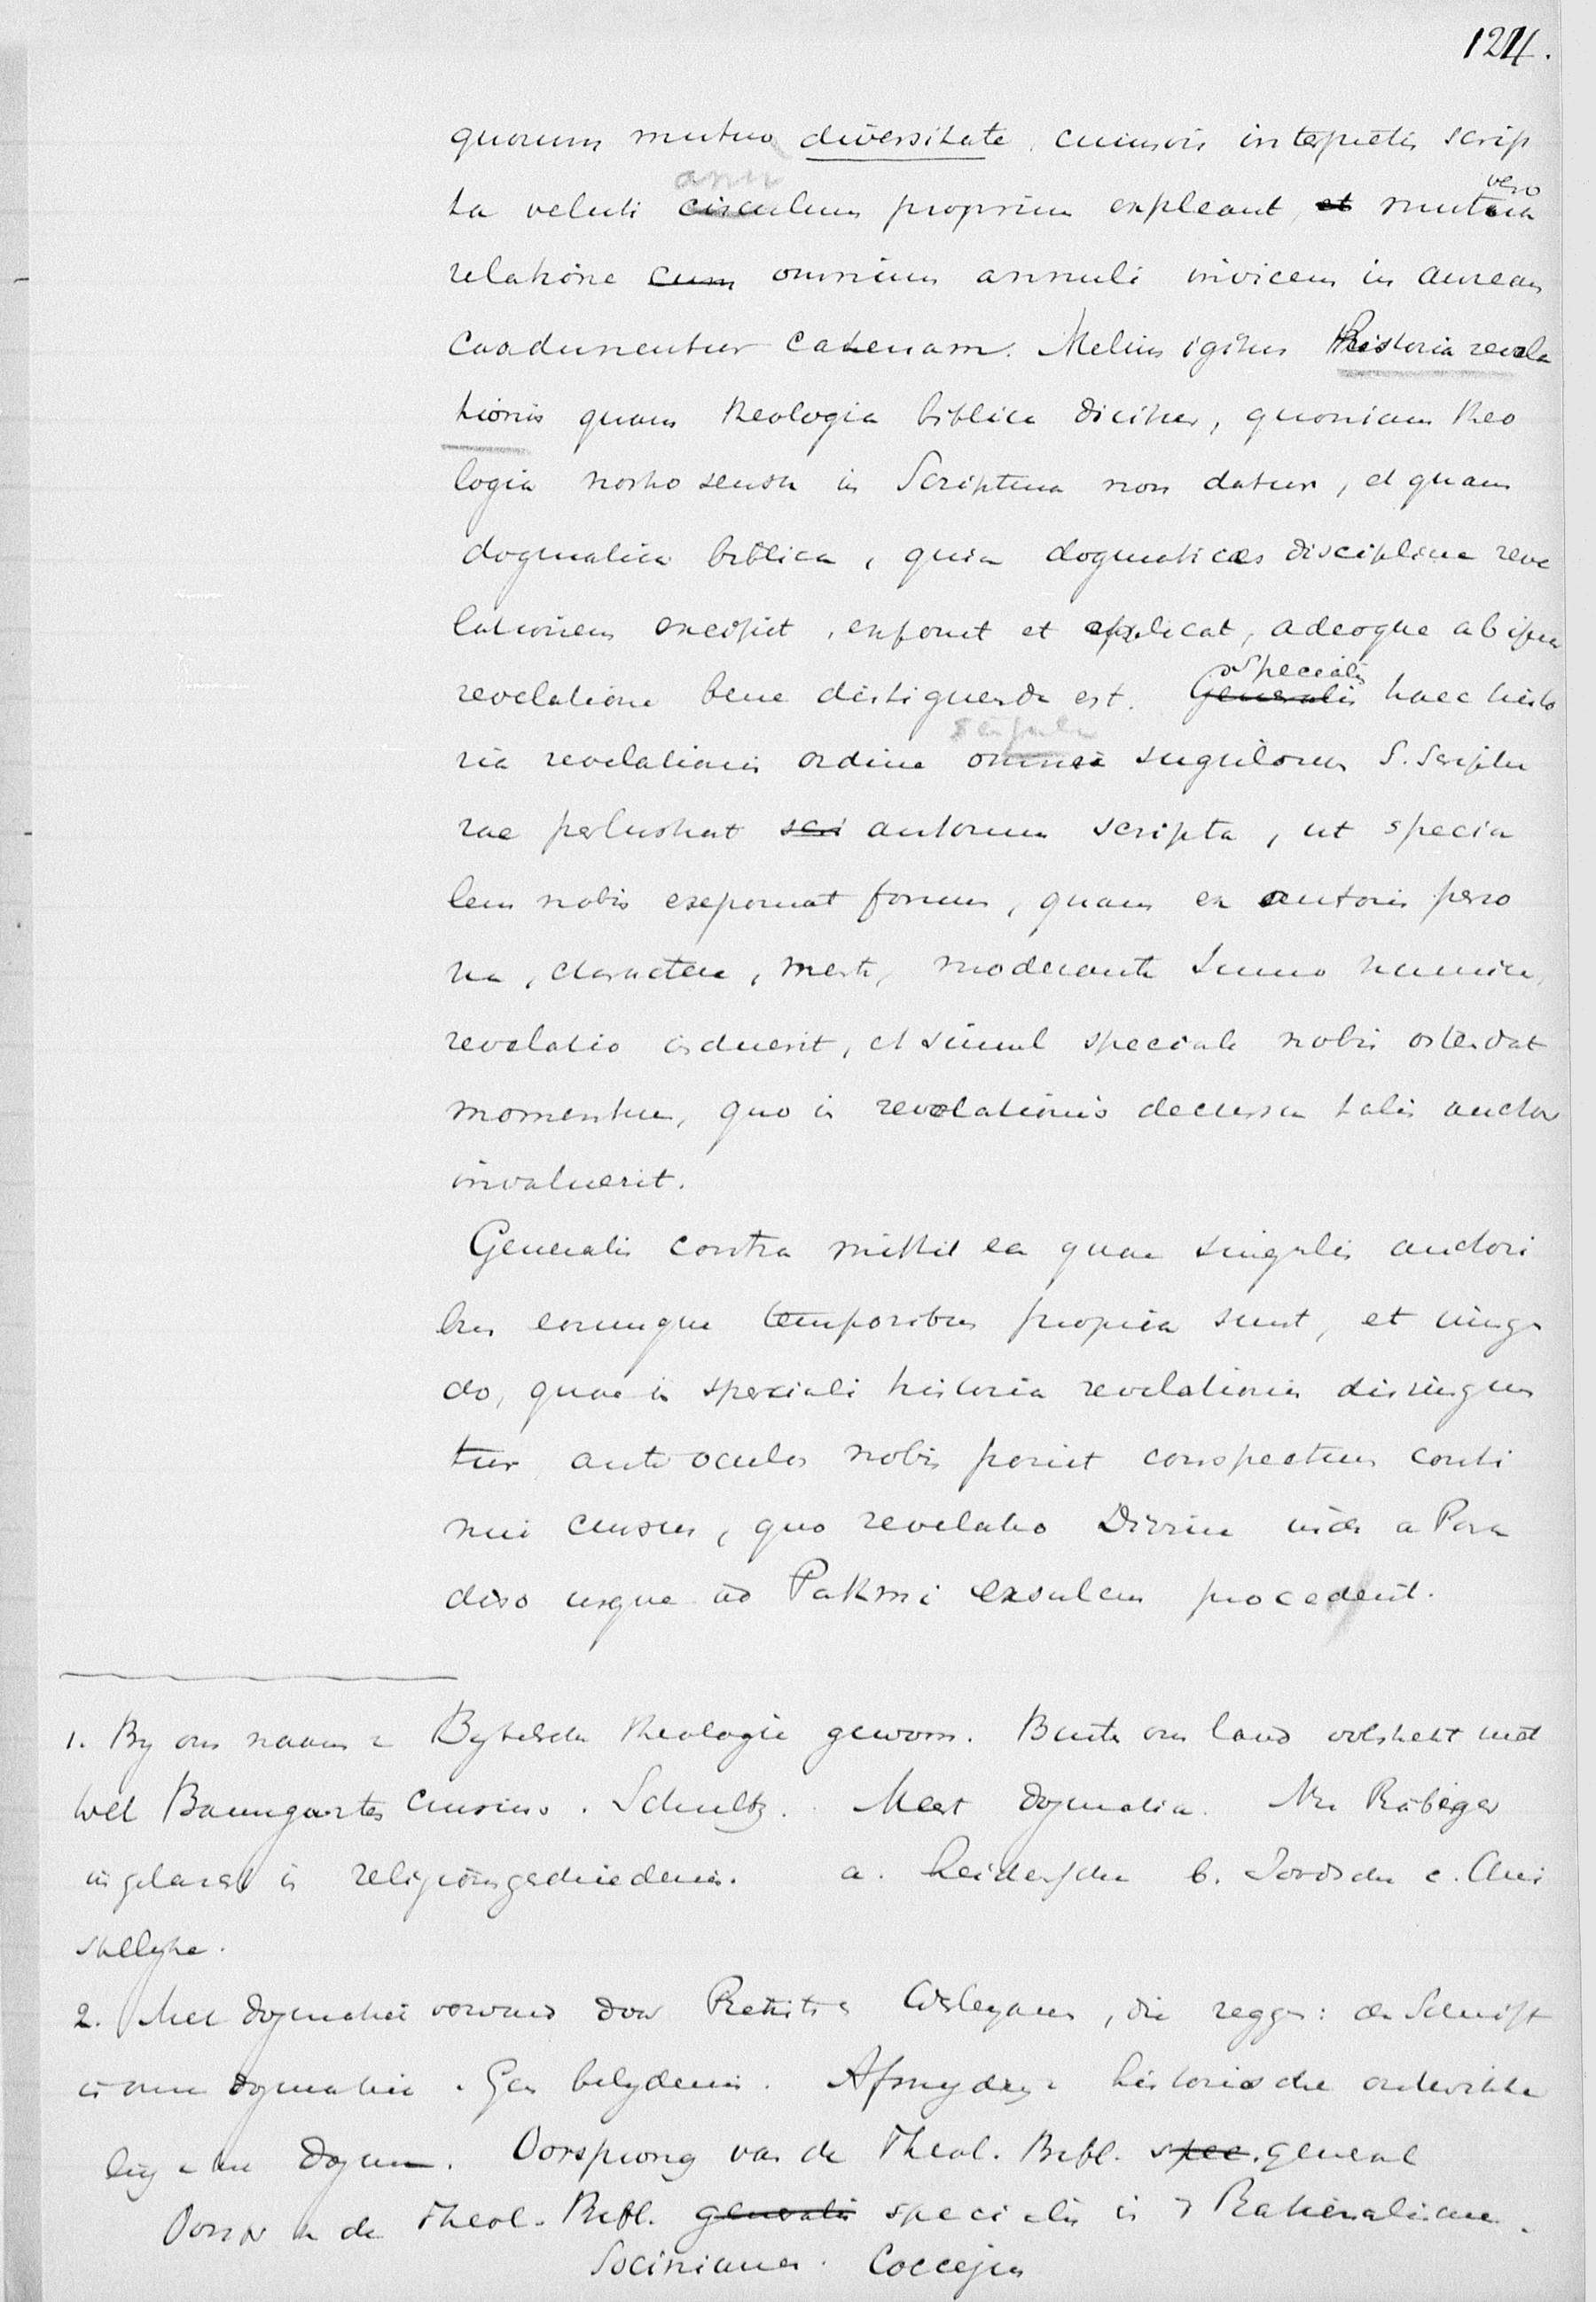 124.
quorum mutuo diversitate, cuiusvis interpretis scrip
annu
vero
ta veluti circulum proprium expleant, et mutua
relatione cum omnium annuli invicem in auream
coadunentur catenam. Melius igitur Historia revela
tionis quam theologia biblica dicitur, quoniam theo
logia nostro sensu in Scriptura non datur, et quam
dogmatica biblica, quia dogmatices disciplina reve
lationem excipit, exponit et explicat, adeoque ab ipsa
revelatione bene distiguenda est. Generalis haec histo
Specialis
singula
ria revelationis ordine omnia singulorum S. Scriptu
rae perlustrat sci autorum scripta, ut specia
lem nobis exponat formam, quam ex autoris perso
na, charactere, mente, moderante summo numine,
revelatio induerit, et simul speciale nobis ostendat
momentum, quo in revelationis decursu talis auctor
invaluerit.
Generalis contra mittit ea quae singulis auctori
bus eorumque temporibus propria sunt, et iungen
do, quae in speciali historia revelationis disiungun
tur ante oculos nobis ponit conspectum conti
nui cursus, quo revelatio Divina inde a Para
diso usque ad Patmi exsulem procederit.
1. By ons naam Bybelsche theologie gewoon. Buiten ons land volstrekt niet
wel Baumgarten Crusius. Schultz. Meest Dogmatica. Nu Räbiger
religionsgeschiedenis. a. Heidensche b. Joodsche c. Chri
stelyke.
2. Met dogmatiek verward door Wesleyanen, die zeggen: de Schrift
is onze dogmatiek. Geen belydenis. Afsnyding historische ontwikke
ling Dogma. Oorsprong van de Theol. Bibl. spec. general
Oorspr de Theol. Bibl. generalis specialis is Rationalisme.
Socinianen. Coccejus